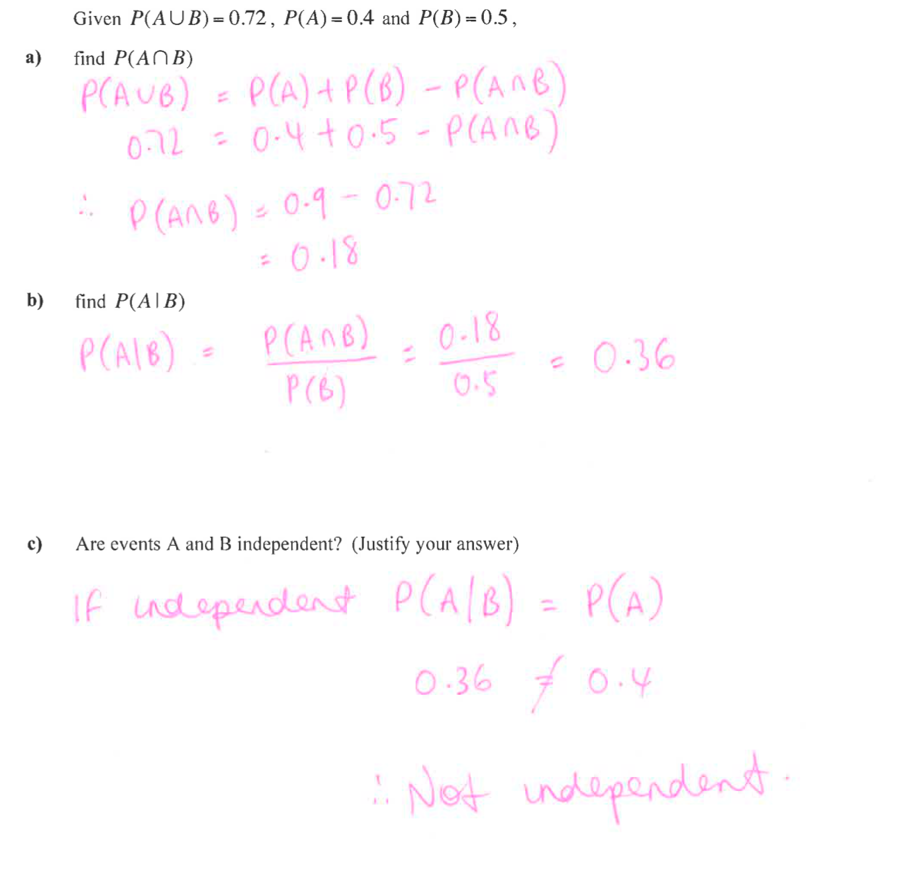 Given P(A∪B)=0.72, P(A)=0.4 and P(B)=0.5,
a) find P(A∩B)
P(A∪B) = P(A)+P(B) - P(A∩B)
0.72 = 0.4 + 0.5 - P(A∩B)
∴ P(A∩B) = 0.9 - 0.72
= 0.18
b) find P(A|B)
P(A|B) = P(A∩B)/P(B) = 0.18/0.5 = 0.36
c) Are events A and B independent? (Justify your answer)
If independent P(A|B) = P(A)
0.36 ≠ 0.4
∴ Not independent.